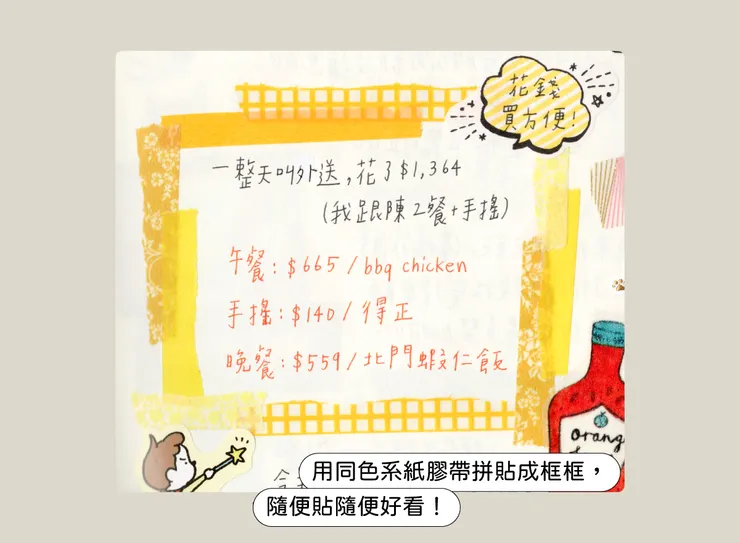 花錢
買方便!
一整天叫外送,花了$1,364
(我跟陳2餐+手搖)
午餐:$665/bbq chicken
手搖:$140/得正
晚餐:$559/北門蝦仁飯
orang
用同色系紙膠帶拼貼成框框，
隨便貼隨便好看！